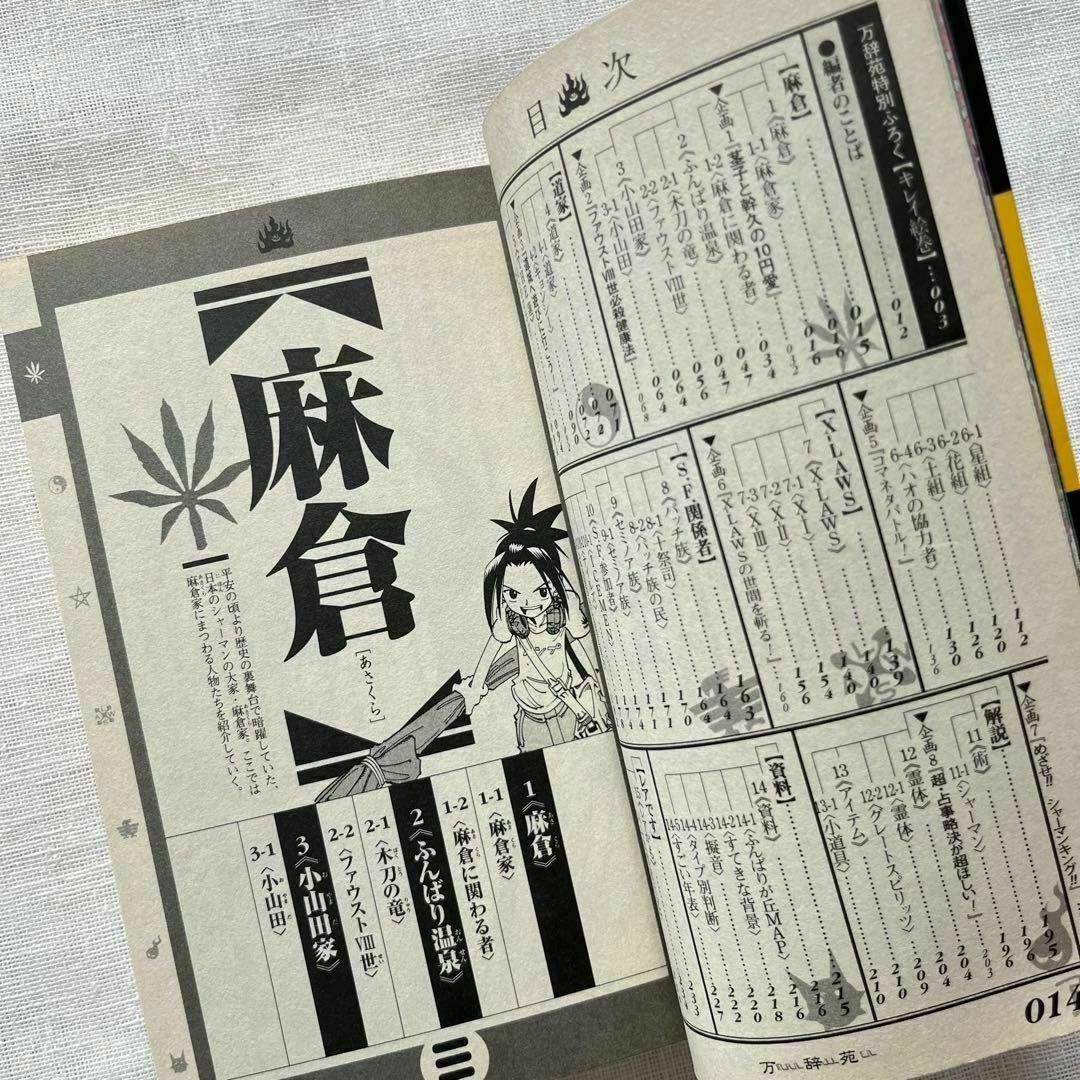 目次
万辞苑特別ふろく【キレイ絵巻】…003
●編者のことば…012
【麻倉】…015
1〈麻倉〉…016
1-1〈麻倉家〉…016
▼企画1『茎子と幹久の10円愛』…032
1-2〈麻倉に関わる者〉…034
2〈ふんばり温泉〉…047
2-1〈木刀の竜〉…047
2-2〈ファウストⅧ世〉…056
3〈小山田家〉…064
3-1〈小山田〉…064
▼企画2『ファウストⅧ世必殺健康法』…068
【道家】…071
4〈道家〉…072
4-1〈道家〉…072
6-1〈星組〉…112
6-2〈花組〉…120
6-3〈土組〉…130
6-4〈ハオの協力者〉
▼企画5『コマネタバトル!』…136
【X-LAWS】…139
7〈X-LAWS〉…140
7-1〈X-Ⅰ〉…140
7-2〈X-Ⅱ〉…154
7-3〈X-Ⅲ〉…156
▼企画6『X-LAWSの世間を斬る!』…160
【S.F.関係者】…163
8〈パッチ族〉…164
8-1〈十祭司〉…164
8-2〈パッチ族の民〉
9〈セミノア族〉
9-1〈セミノア族〉
▼企画7『めざせ!! シャーマンキング!!』
【解説】…195
11〈術〉…196
11-1〈シャーマン〉…196
▼企画8『超・占事略決が超ほしい!』…203
12〈霊体〉…204
12-1〈霊体〉…204
12-2〈グレートスピリッツ〉…209
13〈アイテム〉…210
13-1〈小道具〉…210
【資料】…215
14〈資料〉…216
14-1〈ふんばりが丘MAP〉…216
14-2〈すてきな背景〉…218
14-3〈擬音〉…220
14-4〈タイプ別判断〉…222
14-5〈すごい年表〉…234
014
万辞苑
【麻倉】
[あさくら]
平安の頃より歴史の裏舞台で暗躍していた、
日本のシャーマンの大家 麻倉家。ここでは
麻倉家にまつわる人物たちを紹介していく。
1〈麻倉〉
1-1〈麻倉家〉
1-2〈麻倉に関わる者〉
2〈ふんばり温泉〉
2-1〈木刀の竜〉
2-2〈ファウストⅧ世〉
3〈小山田家〉
3-1〈小山田〉